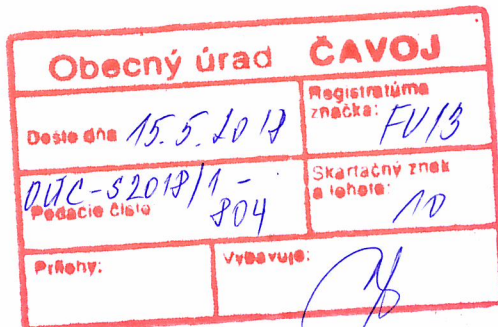 Obecný úrad ČAVOJ
Došlo dňa 15.5.2018
Registratúrna
značka: FV/3
OÚČ-S2018/1-
804
Podacie číslo
Skartačný znak
a lehota: 10
Prílohy:
Vybavuje: